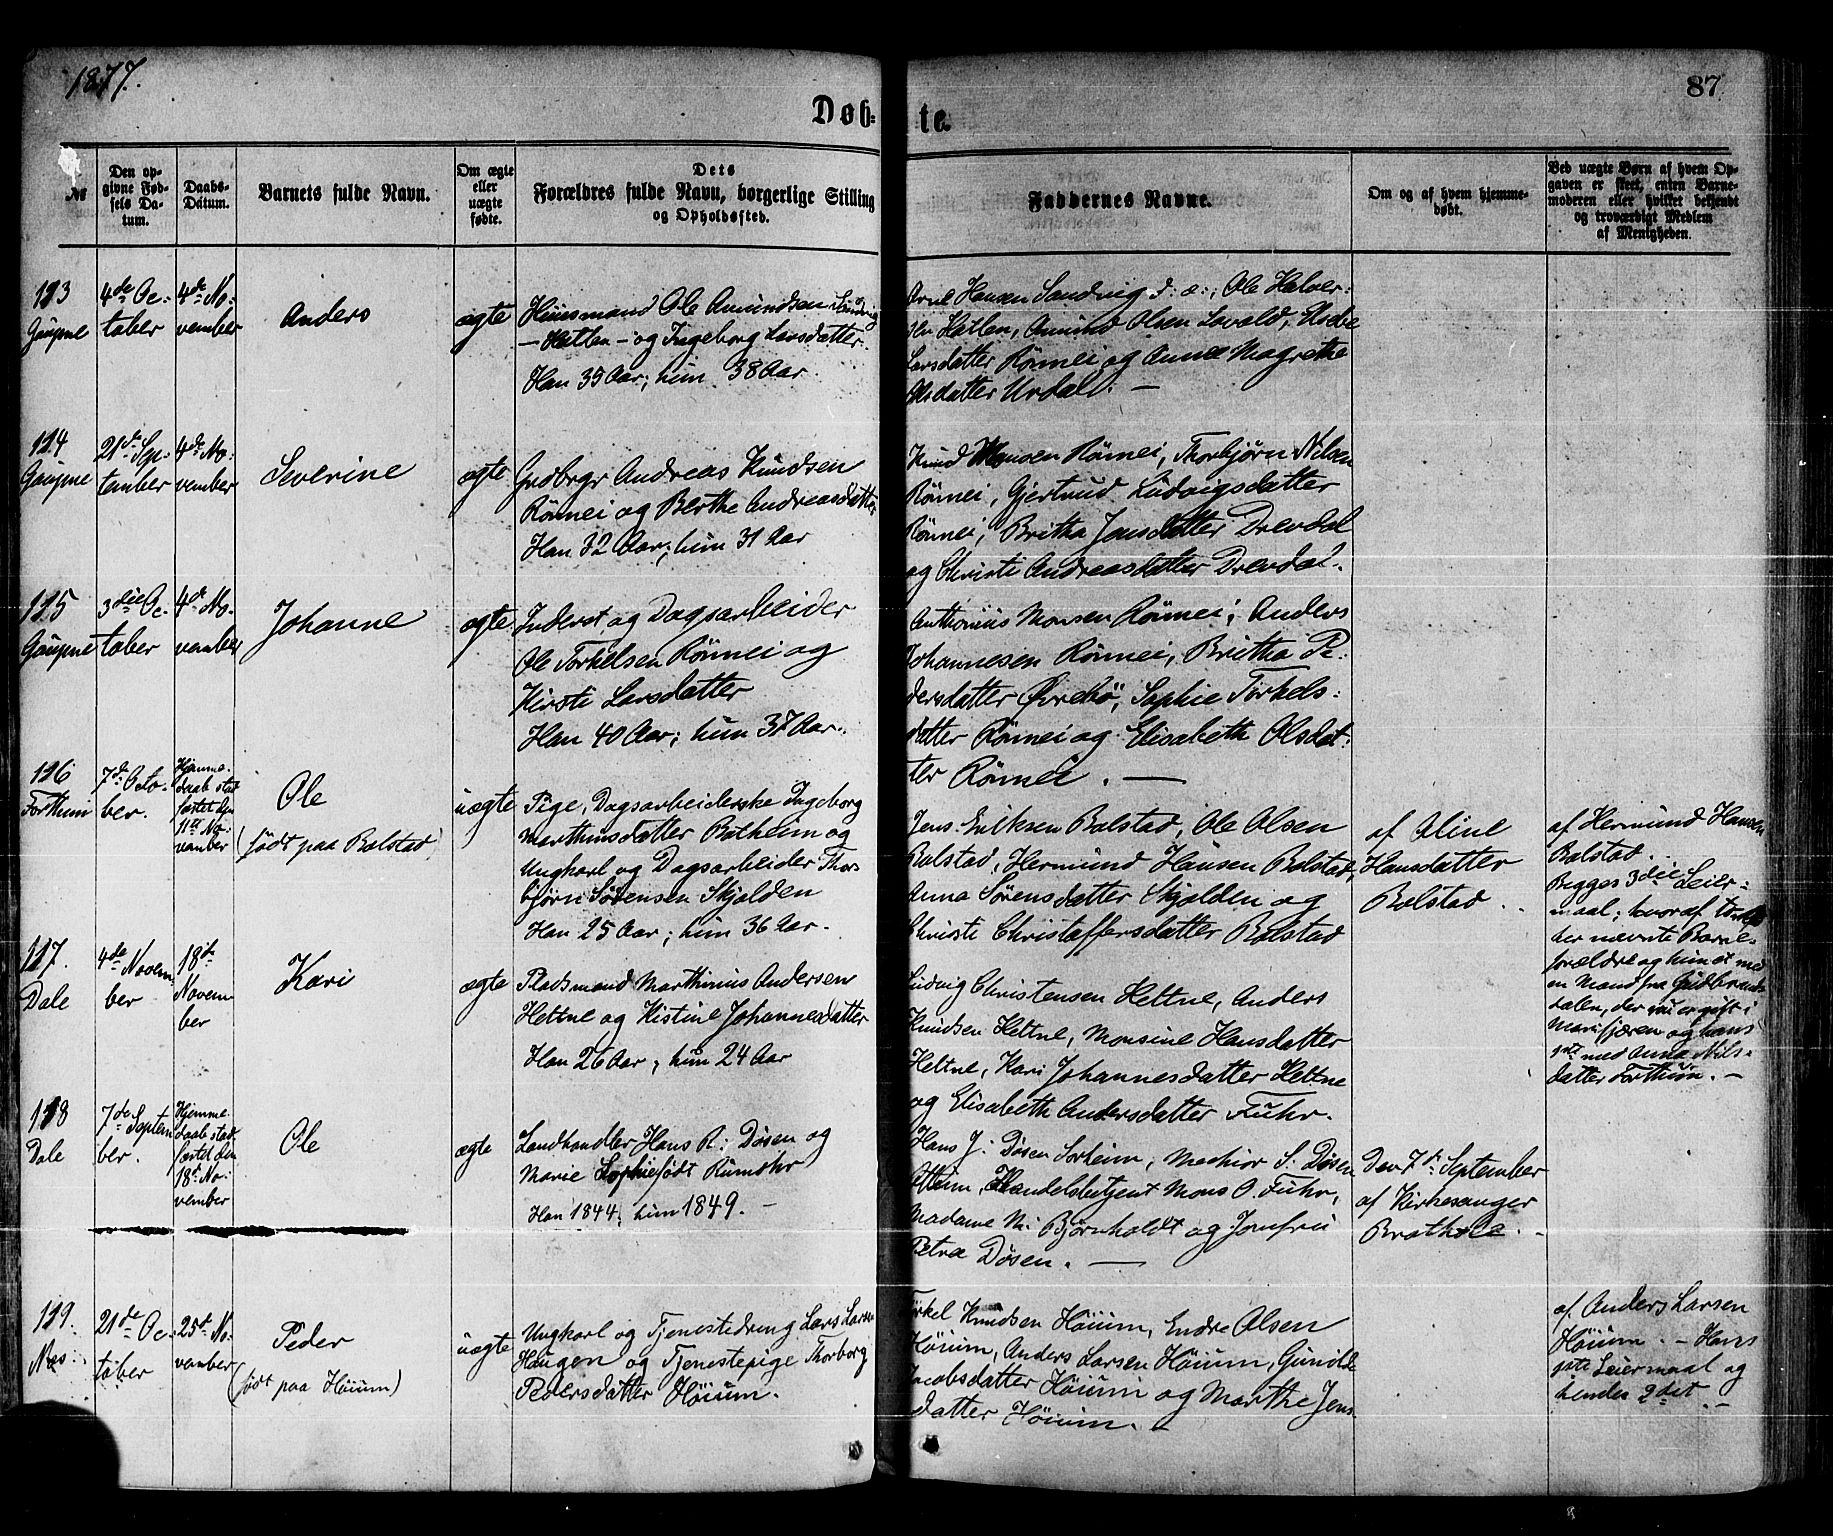 1877.
87.
Døb-
te.
№
Den op-
givne Fød-
sels Da-
tum.
Daabs-
Datum.
Barnets fulde Navn.
Om ægte
eller
uægte
fødte.
Dets
Forældres fulde Navn, borgerlige Stilling
og Opholdssted.
Faddernes Navne.
Om og af hvem hjemme-
døbt.
Ved uægte Børn af hvem Op-
gaven er skeet, enten Barne-
moderen eller hvilket bekjendt
og troværdigt Medlem
af Menigheden.
113
Gaupne
4de Oc-
tober
4de No-
vember
Anders
ægte
Huusmand Ole Amundsen
- Hatlen - og Ingeborg Larsdatter.
Han 35 Aar; hun 38 Aar.
Arne Hansen Sandvig d: æ:, Ole Halver-
sen Hatlen, Amund Olsen Lovald,
Larsdatter Rönnei og Anne Magrethe
Olsdatter Urdal. -
114
Gaupne
21de Sep-
tember
4de No-
vember
Severine
ægte
Grdbrgr Andreas Knudsen
Rönnei og Berthe Andreasdatter
Han 32 Aar; hun 31 Aar
Knud Monsen Rönnei, Thorbjørn Nilsen
Rönnei, Gjertrud Ludvigsdatter
Rönnei, Britha Jensdatter Drevdal
og Christi Andreasdatter Drevdal.
115
Gaupne
3die Oc-
tober
4de No-
vember
Johanne
ægte
Inderst og Dagsarbeider
Ole Torkelsen Rönnei og
Kirsti Larsdatter
Han 40 Aar; hun 37 Aar.
Anthonius Monsen Rönnei; Anders
Johannesen Rönnei, Britha Pe-
dersdatter Øvrebö, Sophie Torkels-
datter Rönnei og Elisabeth Olsdat-
ter Rönnei. -
116
Forthun
7de Octo-
ber.
Hjemme-
daab stad-
fæstet den
11te No-
vember
Ole
(født paa Bolstad)
uægte
Pige, Dagsarbeiderske Ingeborg
Marthinsdatter Botheim og
Ungkarl og Dagsarbeider Thor-
bjørn Sørensen Skjolden
Han 25 Aar; hun 36 Aar.
Jens Eriksen Bolstad, Ole Olsen
Bolstad, Hermund Hansen Bolstad,
Anna Sørensdatter Skjolden og
Christi Christaffersdatter Bolstad
af Oline
Hansdatter
Bolstad.
af Hermund Hansen
Bolstad.
Begges 3die Leier-
maal; hvoraf
der nævnte Barne-
forældre og hun et med
en Mand fra Gudbrands-
dalen, der nu er gift i
Marifjæren og hans
1ste med Anna Nils-
datter Forthun. -
117.
Dale
4de Novem-
ber
18de
Novem-
ber
Kari
ægte
Pladsmand Marthinius Andersen
Heltne og Kistine Johannesdatter
Han 26 Aar; hun 24 Aar
Ludvig Christensen Heltne, Anders
Knudsen Heltne, Monsine Hansdatter
Heltne, Kari Johannesdatter Heltne
og Elisabeth Andersdatter Fuhr.
118
Dale
7de Septem-
ber.
Hjemme-
daab stad-
fæstet den
18de No-
vember
Ole
ægte
Landhandler Hans R: Døsen og
Marie Sophie født Rumohr
Han 1844; hun 1849. -
Hans J. Døsen Sorheim, Mechior S. Døsen
Handelsbetjent Mons O. Fuhr,
Madame M: Bjørnholdt og Jomfru
Petra Døsen. -
Den 7de September
af Kirkesanger
Bratholm. -
119.
Nes.
21de Oc-
tober
25de No-
vember
Peder
(født paa Høium)
uægte
Ungkarl og Tjenestedreng Lars Larsen
Haugen og Tjenestepige Thorborg
Pedersdatter Høium.
Torkel Knudsen Høium, Endre Olsen
Høium, Anders Larsen Høium, Gunild
Jacobsdatter Høium og Marthe Jens-
datter Høium. -
af Anders Larsen
Høium. - Hans
1ste Leiermaal og
hendes 2det. -